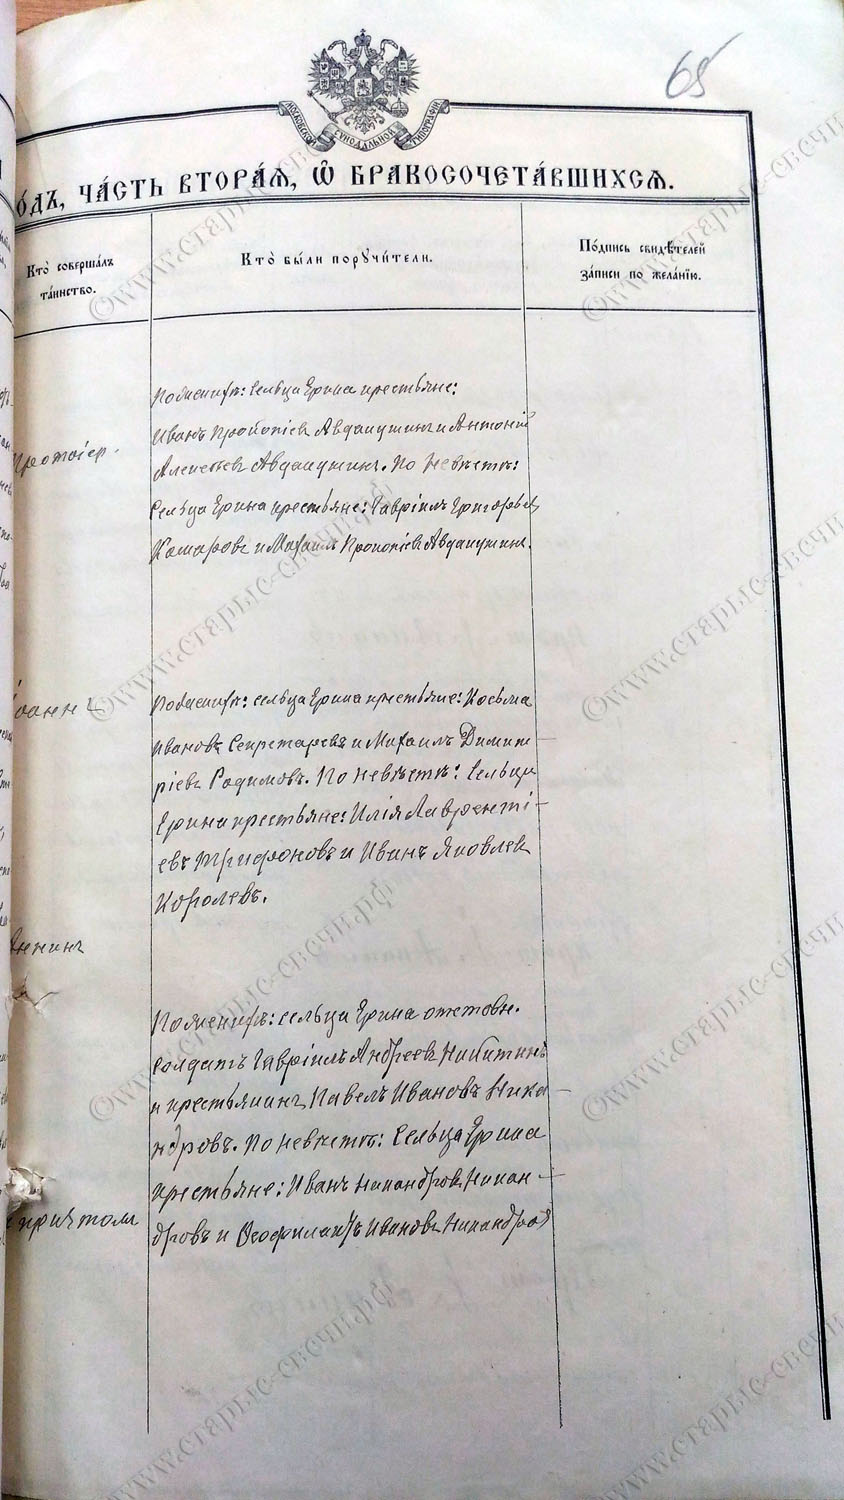 65
МОСКОВСКОЙ СѴНОДАЛЬНОЙ ТИПОГРАФІИ
о́дъ, ча́сть втора́ѧ, ѡ҆ бракосочета́вшихсѧ.
Кто̀ соверша́лъ
та́инство.
Кто̀ бы́ли поручи́тели.
По́дпись свидѣ́телей
за́писи по жела́нїю.
протоіер.
Іоаннъ
причтомъ
По женихѣ: сельца Ерина крестьяне:
Иванъ Прокопіевъ Авдакушинъ и Антоній
Алексѣевъ Авдакушинъ. По невѣстѣ:
Сельца Ерина крестьяне: Гавріилъ Григорьевъ
Комаровъ и Михаилъ Прокопіевъ Авдакушинъ.
По женихѣ: сельца Ерина крестьяне: Косьма
Ивановъ Секретаревъ и Михаилъ Димит-
ріевъ Радимовъ. По невѣстѣ: Сельца
Ерина крестьяне: Илія Лавренті-
евъ Трифоновъ и Иванъ Яковлев
Королевъ.
По женихѣ: сельца Ерина отставн.
солдатъ Гавріилъ Андреевъ Никитинъ
и крестьянинъ Павелъ Ивановъ Ника-
ндровъ. По невѣстѣ: Сельца Ерина
крестьяне: Иванъ Никандровъ Никан-
дровъ и Ѳеофилактъ Ивановъ Никандров
©www.старыс-свечи.рф